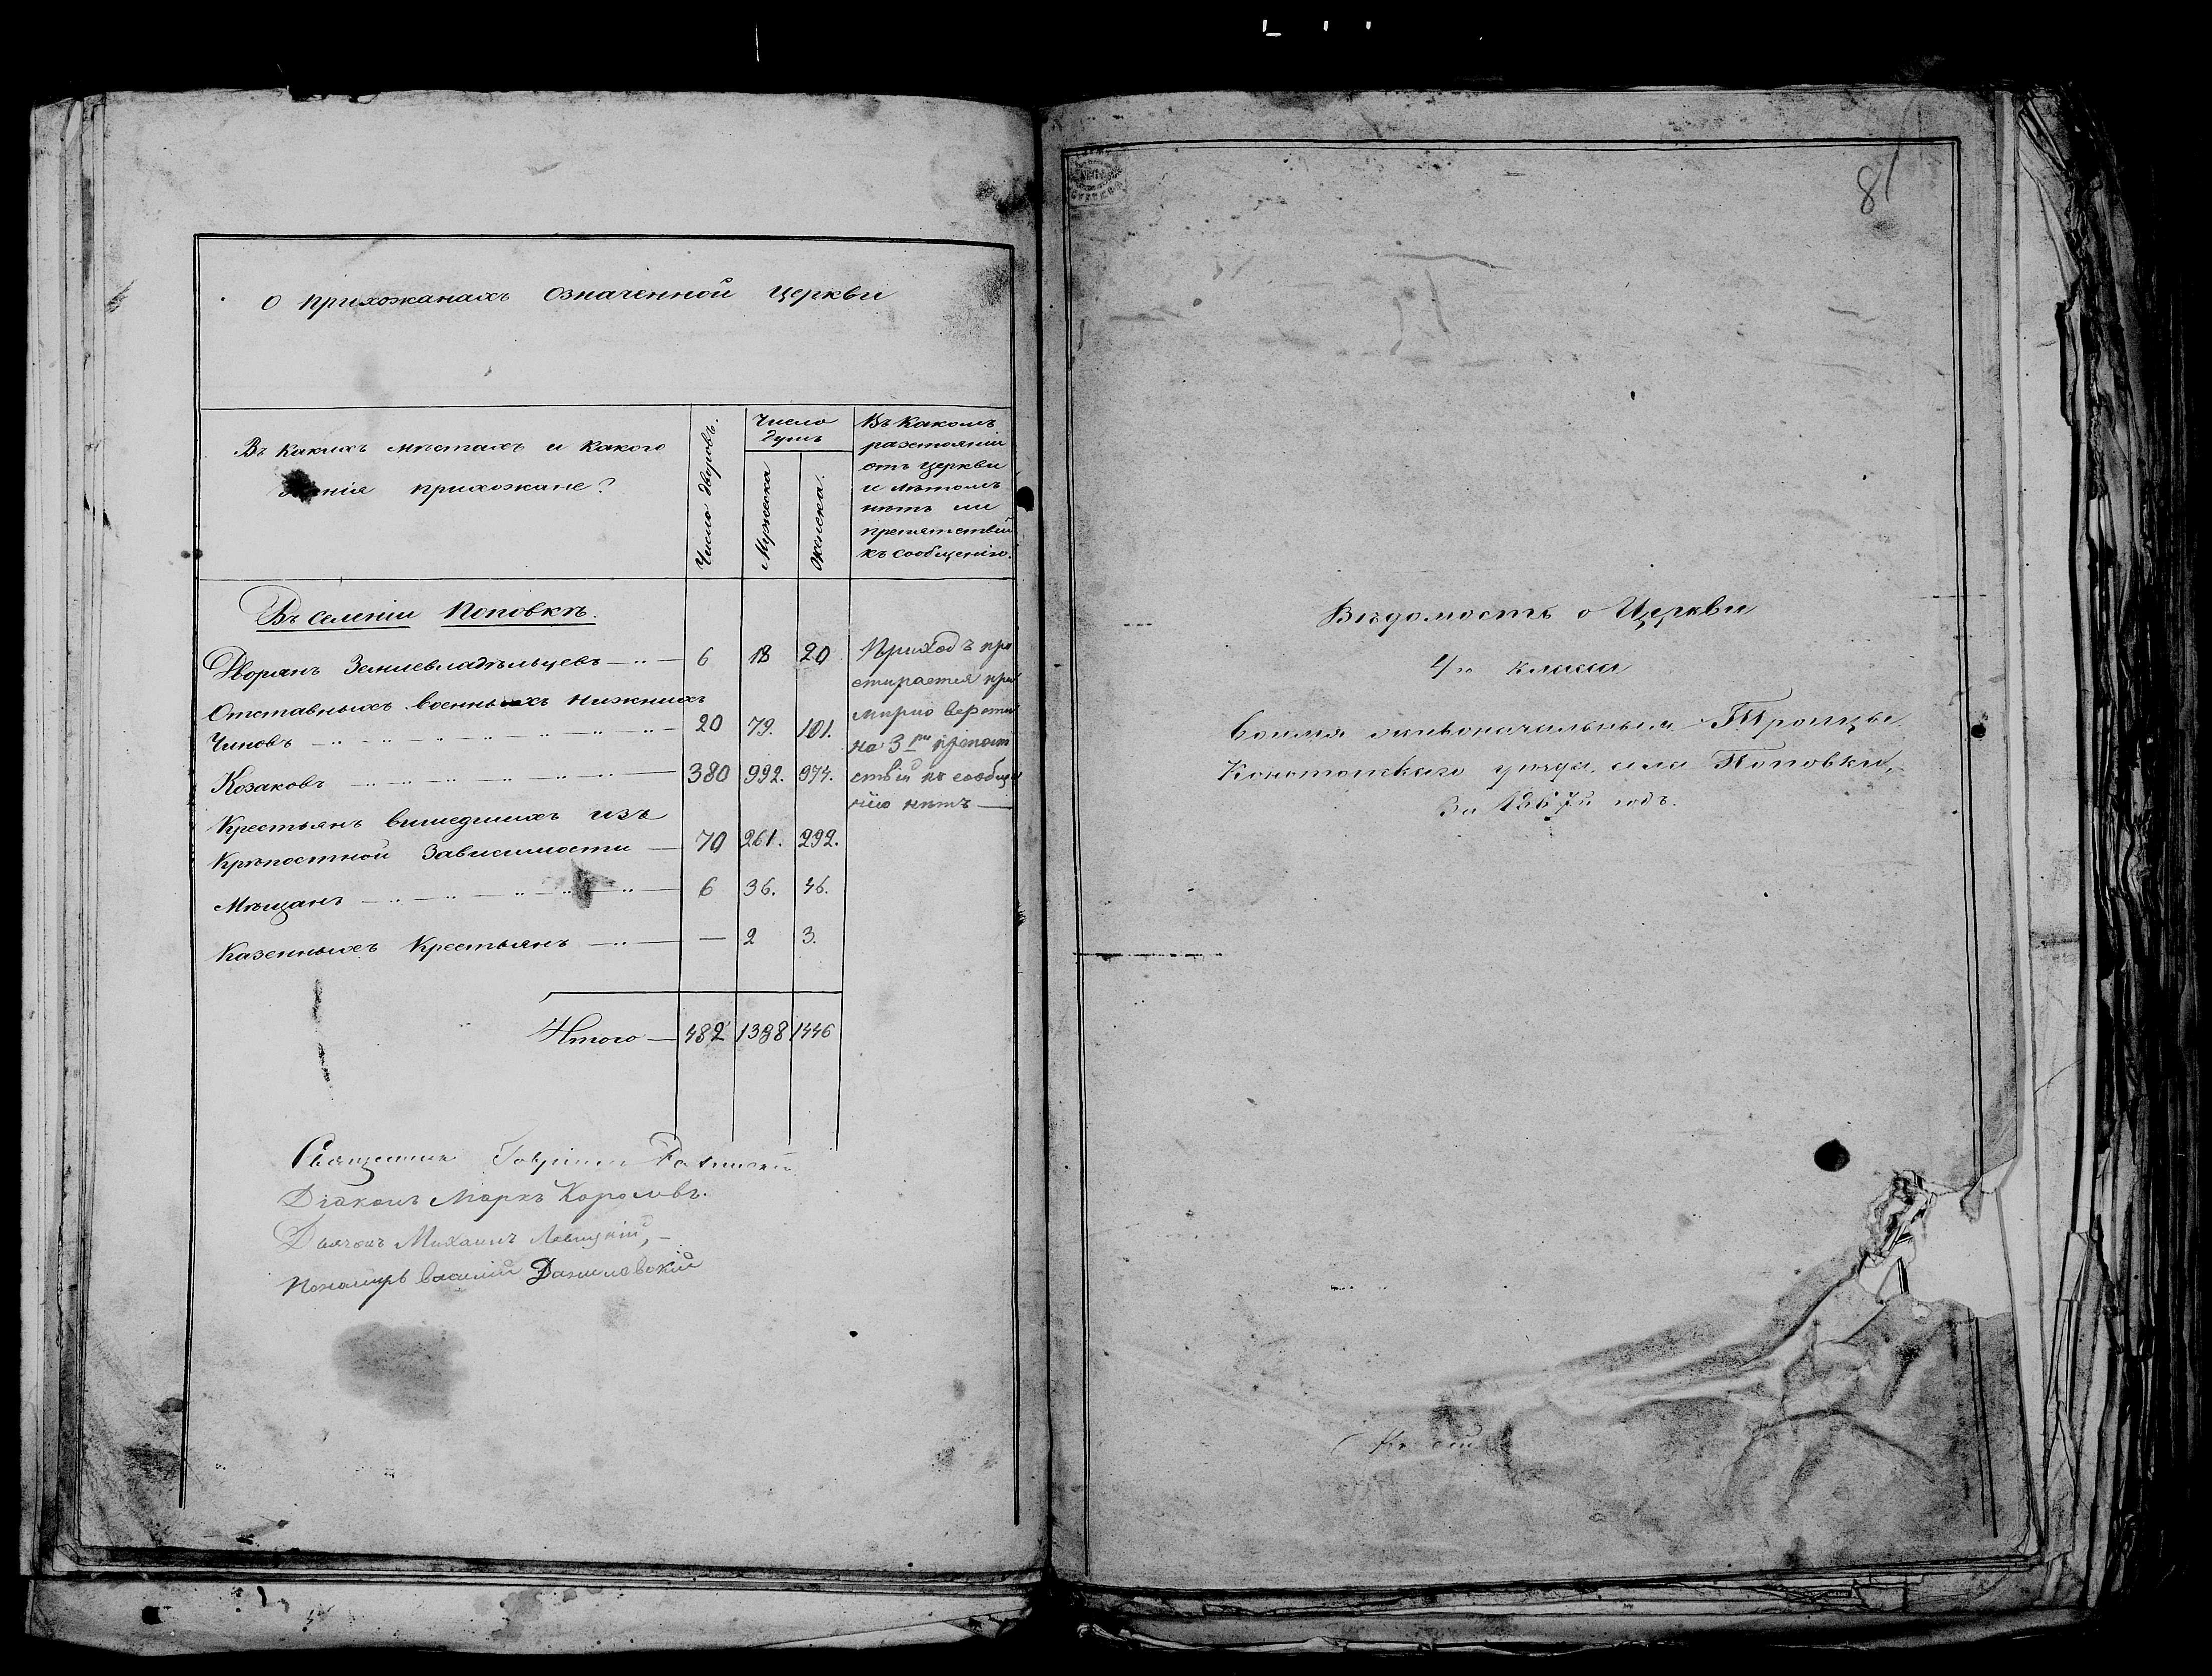 О прихожанахъ означенной церкви
Въ какихъ мѣстахъ и какого
званія прихожане?
Число дворовъ.
Число
душъ
Мужеска
Женска.
Въ какомъ
разстояніи
отъ церкви
и лѣтомъ
нѣтъ ли
препятствій
къ сообщенію.
Въ селеніи Поповкѣ.
Дворянъ Землевладѣльцевъ 6 18 20
Отставныхъ военныхъ нижнихъ
Чиновъ 20 79. 101.
Козаковъ 380 992. 974.
Крестьянъ вышедшихъ изъ
Крѣпостной Зависимости 70 261. 292.
Мѣщанъ 6 36. 46.
Казенныхъ Крестьянъ — 2 3.
Итого 482 1388 1446
Приходъ про
стирается при
мѣрно верстъ
на 3 препят
ствій къ сообще
нію нѣтъ
Священникъ
Діаконъ Маркъ Королевъ.
Дьячокъ Михаилъ Левицкій,
Пономарь Василій Данилевскій
81
Вѣдомость о Церкви
класса
Во имя живоначальныя Троицы
Конотопскаго уѣзда села Поповки,
За 1867й годъ.